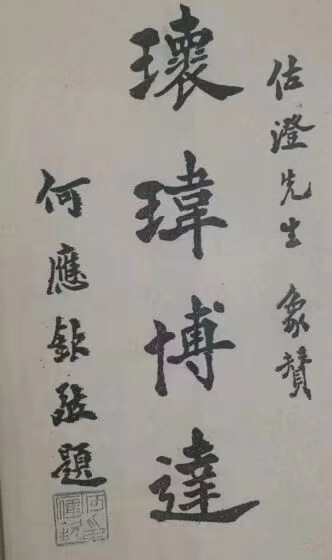 佑澄先生象贊
瓌瑋博達
何應欽敬題